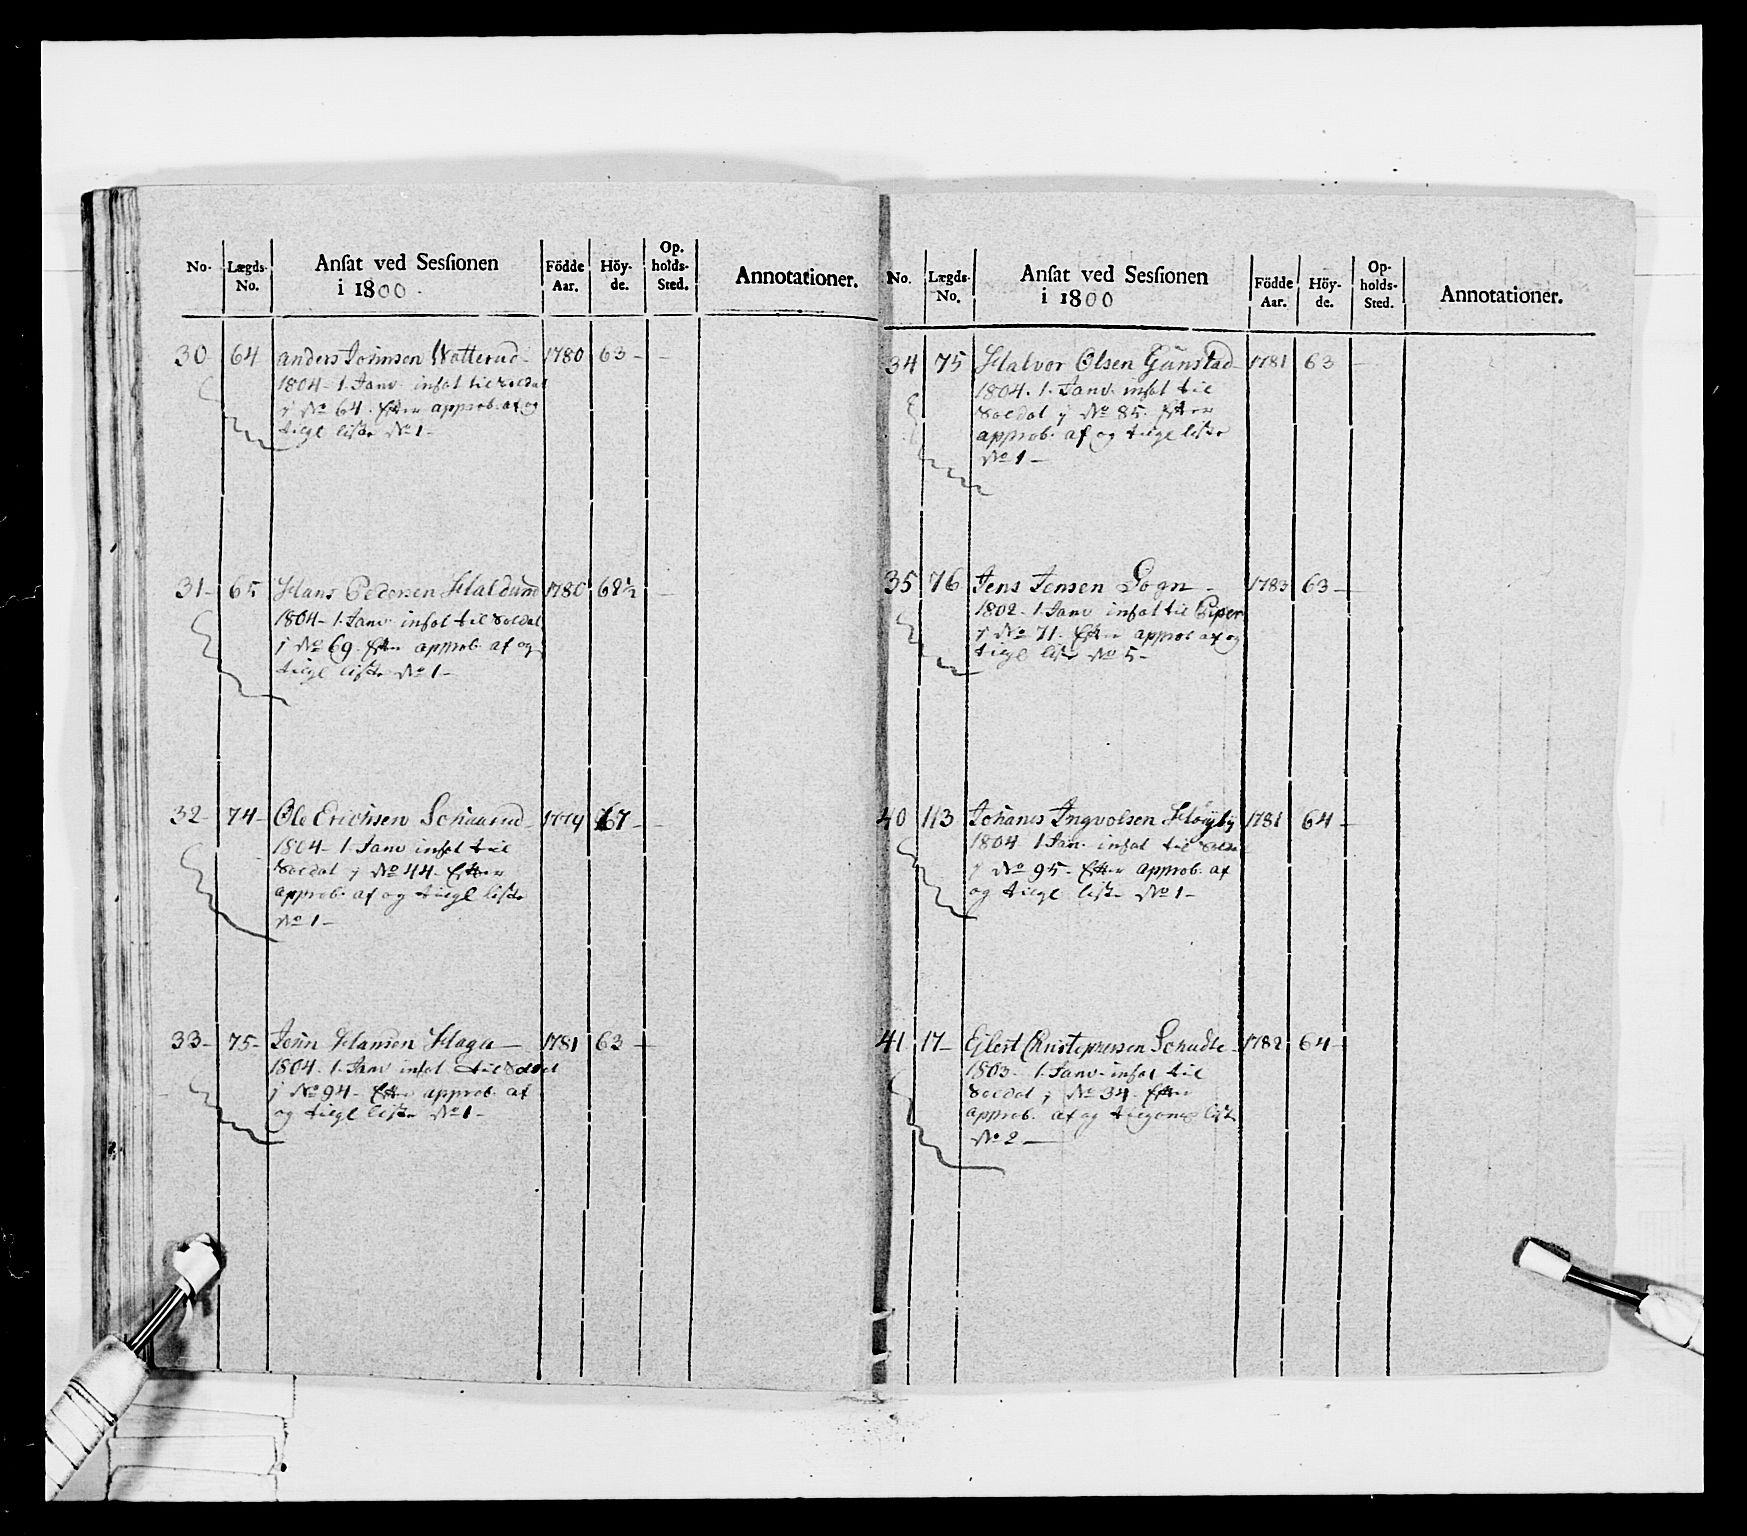 No. Lægds- No. Anſat ved Sesſionen i 1800. Födde Aar. Höy- de. Op. holds- Sted. Annotationer.
30 64 anders Johnsen Watterud 1780 63 –
1804 – 1. Janv. insat til soldat
j No 64. Efter approb. af og
tilgl liste No 1 –
31 – 65 Hans Pedersen Haldum 1780 62½ –
1804 – 1. Janv insat til Soldat
j No 69. Efter approb. af og
tilgl liste No 1 –
32 – 74 – Ole Erichsen 1779 67 –
1804 – 1. Janv insat til
Soldat j No 44. Efter
approb. af og tilgl liste
No 1 –
33 – 75 – John Hansen Haga – 1781 63 –
1804. 1. Janv insat til Soldat
j No 94 – Efter approb. af
og tilgl liste No 1 –
No. Lægds- No. Anſat ved Sesſionen i 1800 Födde Aar. Höy- de. Op- holds- Sted. Annotationer.
34 75 Halvor Olsen Gunstad – 1781 63 –
1804. 1. Janv. insat til
Soldat j No 85. Efter
approb. af og tilgl liste
No 1 –
35 76 Jens Jensen Sogn – 1783 63 –
1802 – 1. Janv insat til Piper
j No 71. Efter approb af og
tilgl liste No 5 –
40 113 Johanes Ingvolsen Høÿbÿ 1781 64 –
1804 1 Jan. insat til Soldat
j No 95 – Efter approb. af
og tilgl liste No 1 –
41 17 – Ejlert Christophersen 1782 64 –
1803 – 1. Janv. insat til
Soldat j No 34. Efter
approb. af og liste
No 2 –